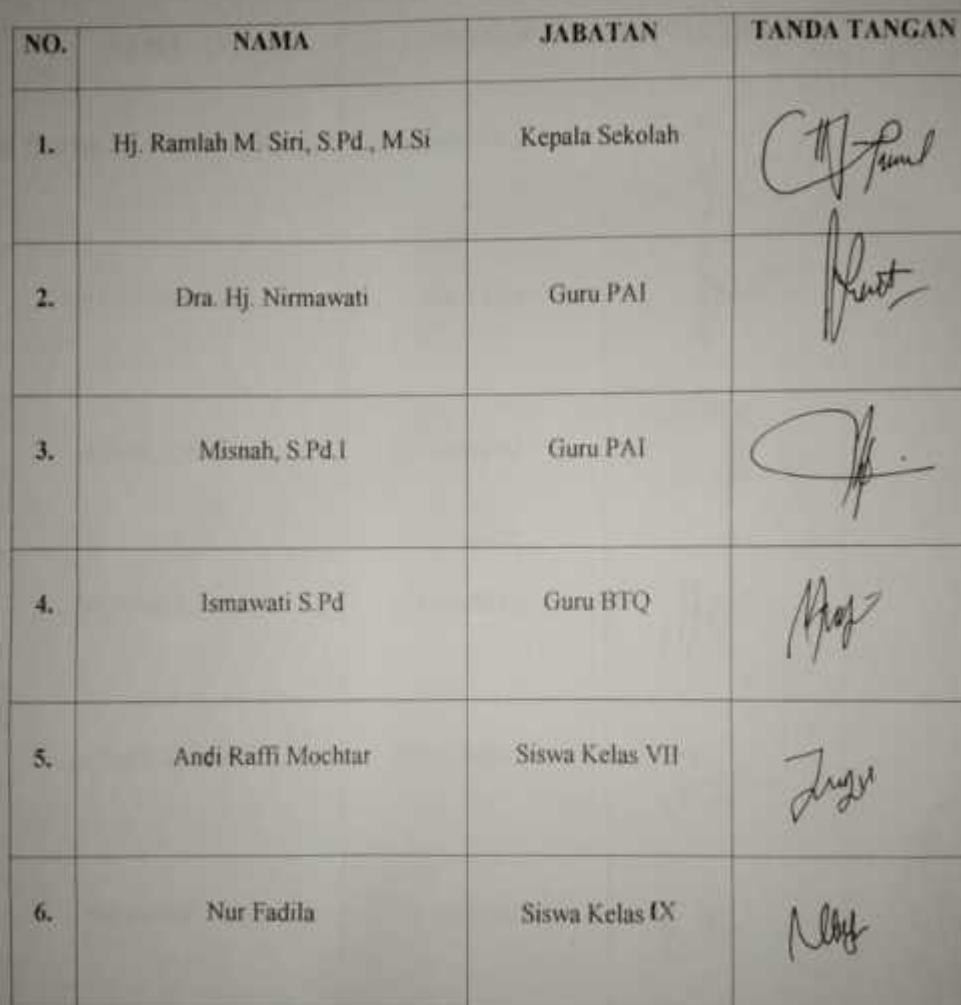 NO. NAMA JABATAN TANDA TANGAN
1. Hj. Ramlah M. Siri, S.Pd., M.Si Kepala Sekolah
2. Dra. Hj. Nirmawati Guru PAI
3. Misnah, S.Pd.I Guru PAI
4. Ismawati S.Pd Guru BTQ
5. Andi Raffi Mochtar Siswa Kelas VII
6. Nur Fadila Siswa Kelas IX